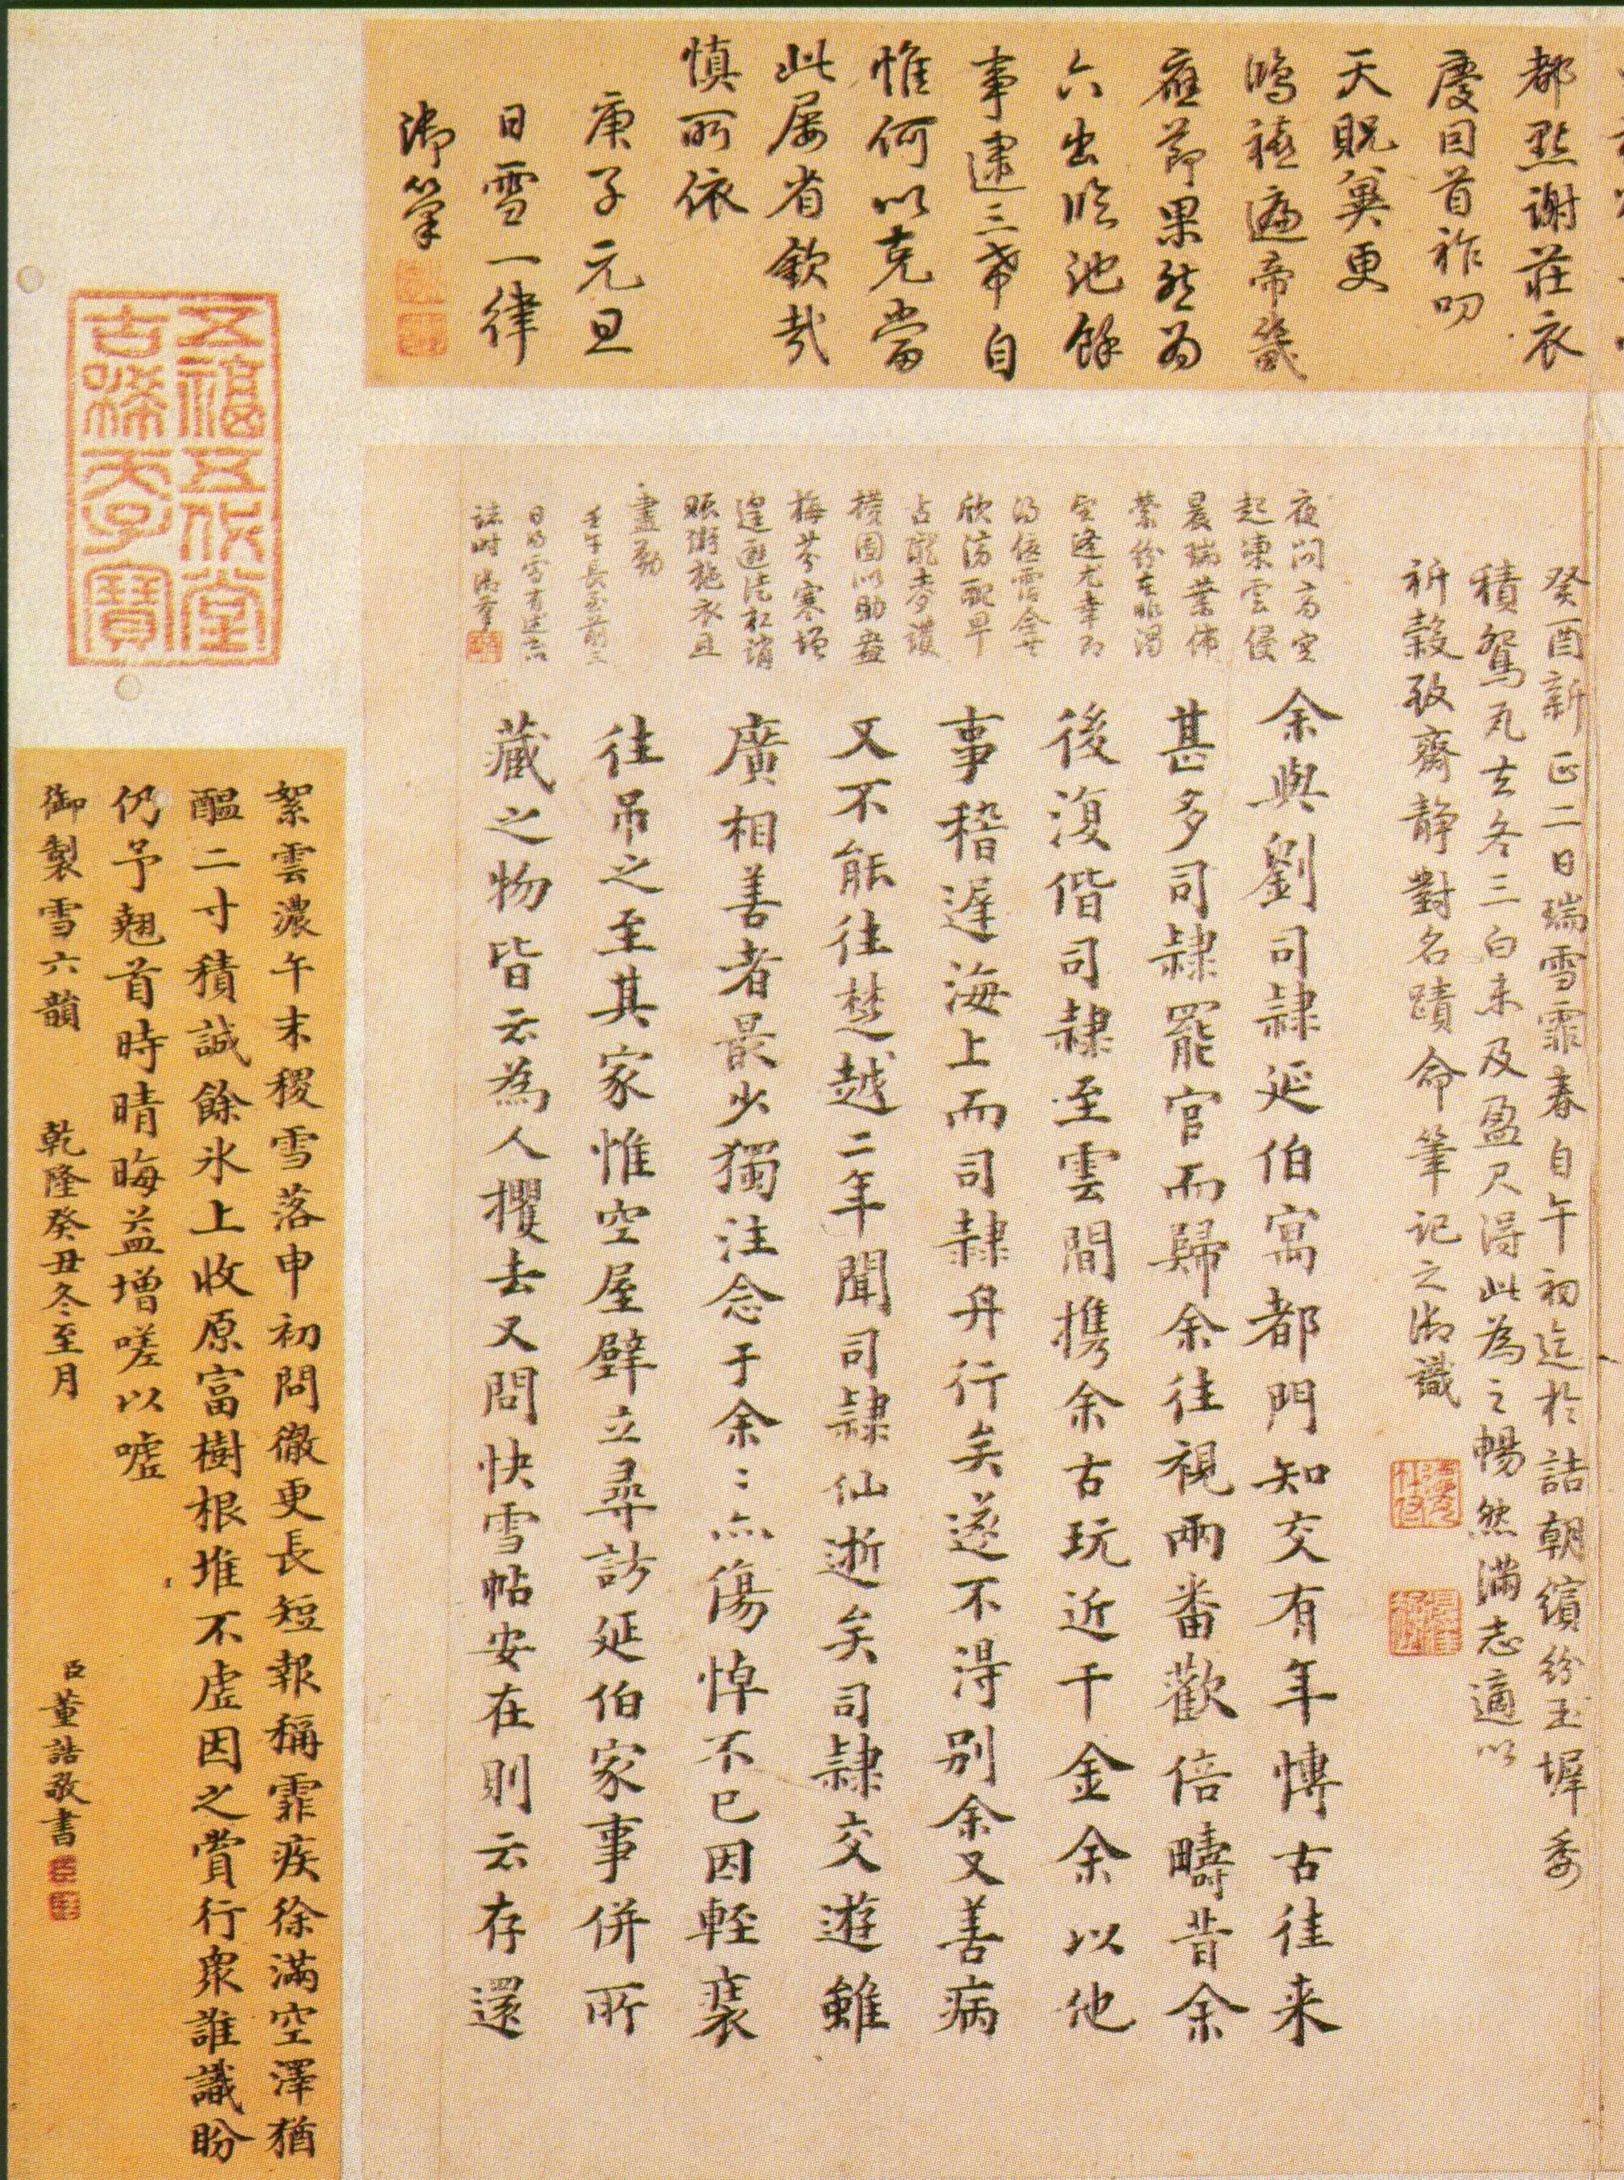 都點謝莊衣
慶因首祚叨
天貺冀更
鴻禧遍帝畿
應節果然為
六出臨池餘
事逮三希自
惟何以克當
此屢省欽哉
慎所依
庚子元旦
日雪一律
御筆
癸酉新正二日瑞雪霏春自午初迄於詰朝繽紛玉墀委
積鴛瓦去冬三白未及盈尺得此為之暢然滿志適以
祈穀致齋靜對名蹟命筆記之御識
夜問高空
起凍雲侵
晨瑞葉佈
縈紛
欣滂
占
橫圖以助
梅芬寒
遑
賑粥施衣且
盡勤
壬午長至前三
日的雪有述言
誌時御筆
余與劉司隸延伯寓都門知交有年博古往来
甚多司隸罷官而歸余往視兩番歡倍疇昔余
後復偕司隸至雲間攜余古玩近千金余以他
事稽遲海上而司隸舟行矣遂不得別余又善病
又不能往楚越二年聞司隸仙逝矣司隸交遊雖
廣相善者最少獨注念于余〻亦傷悼不已因輕裝
往吊之至其家惟空屋壁立尋訪延伯家事併所
藏之物皆云為人攫去又問快雪帖安在則云存還
五福五代堂
古稀天子寶
絮雲濃午末稷雪落申初問徹更長短報稱霏疾徐滿空澤猶
醞二寸積誠餘氷上收原富樹根堆不虛因之賞行衆誰識盼
仍予翹首時晴晦益增嗟以噓
御製雪六韻　乾隆癸丑冬至月
臣董誥敬書